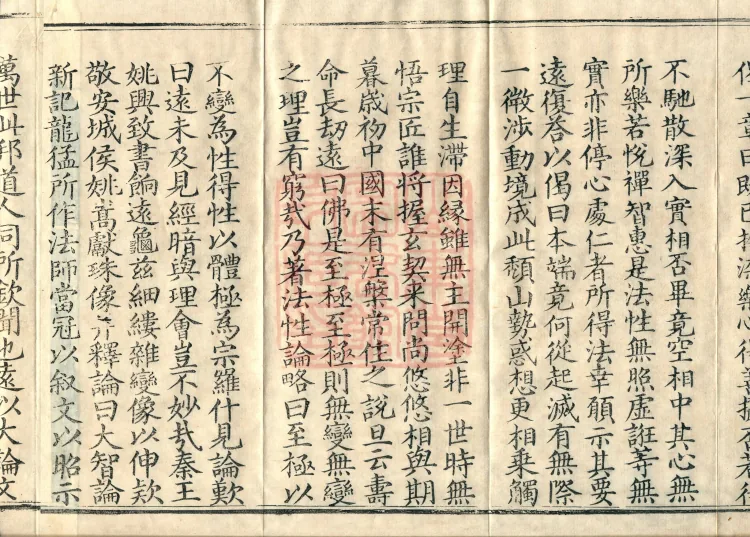 不馳散深入實相否畢竟空相中其心無
所樂若悅禪智惠是法性無照虛誑等無
實亦非停心處仁者所得法幸願示其要
遠復荅以偈曰本端竟何從起滅有無際
一微涉動境成此頹山勢惑想更相乗觸
理自生滯因緣雖無主開塗非一世時無
悟宗匠誰將握玄契来問尚悠悠相與期
暮歲初中國末有涅槃常住之說旦云壽
命長劫遠曰佛是至極至極則無變無變
之理豈有窮㢤乃著法性論略曰至極以
不變為性得性以體極為宗羅什見論歎
曰遠未及見經暗與理會豈不妙㢤秦王
姚興致書餉遠龜茲細縷雜變像以伸欵
敬安城侯姚嵩獻珠像并釋論曰大智論
新記龍猛所作法師當冠以叙文以昭示
萬世此邦道人同所欽聞也遠以大論文